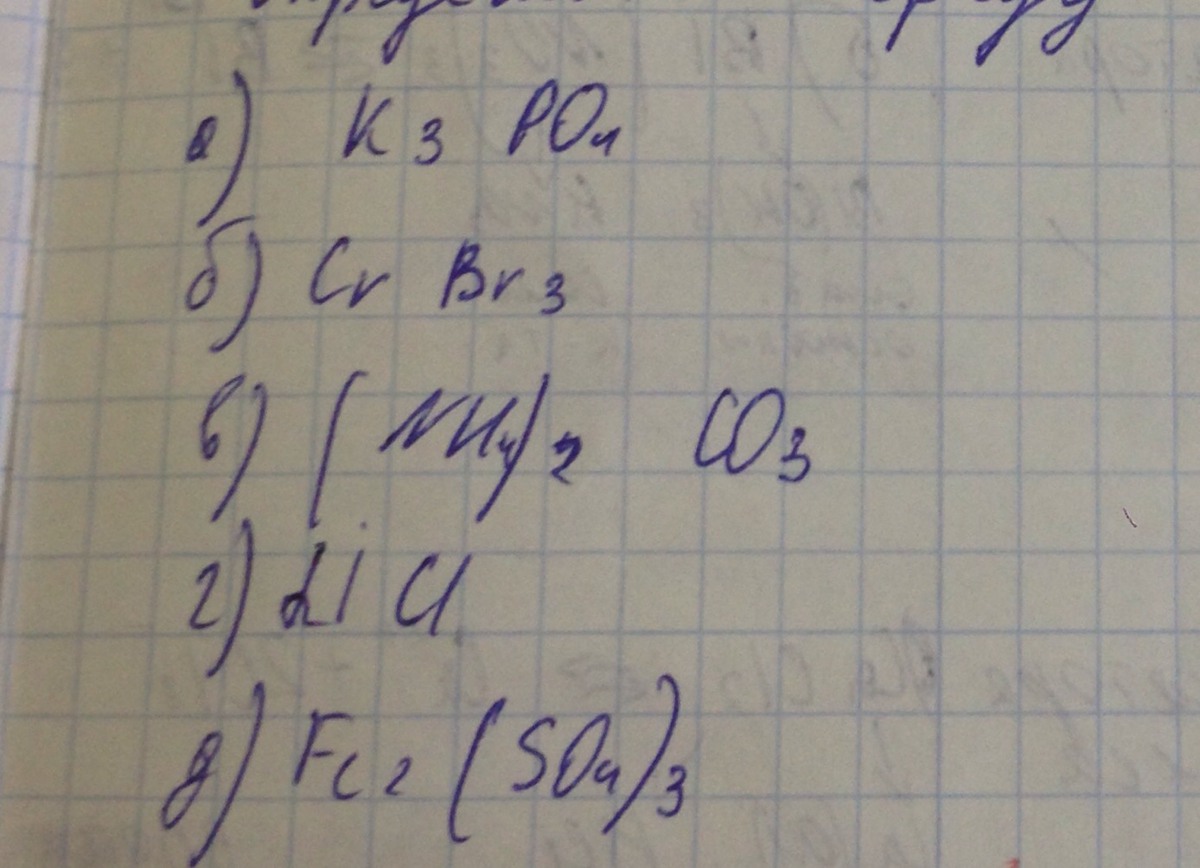 а) K3 PO4
б) Cr Br3
в) (NH4)2 CO3
г) Li Cl
д) Fe2 (SO4)3